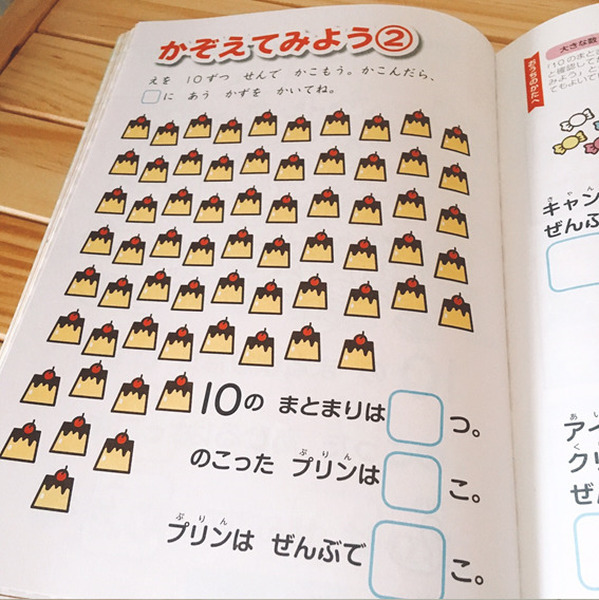 かぞえてみよう②
えを 10ずつ せんで かこもう。かこんだら、
□に あう かずを かいてね。
10の まとまりは□つ。
ぷりん
のこった プリンは□こ。
ぷりん
プリンは ぜんぶで□こ。
おうちのかたへ
大きな数
「10のまと
と確認して
みよう」
てもよいで
キャン
ぜんぶ